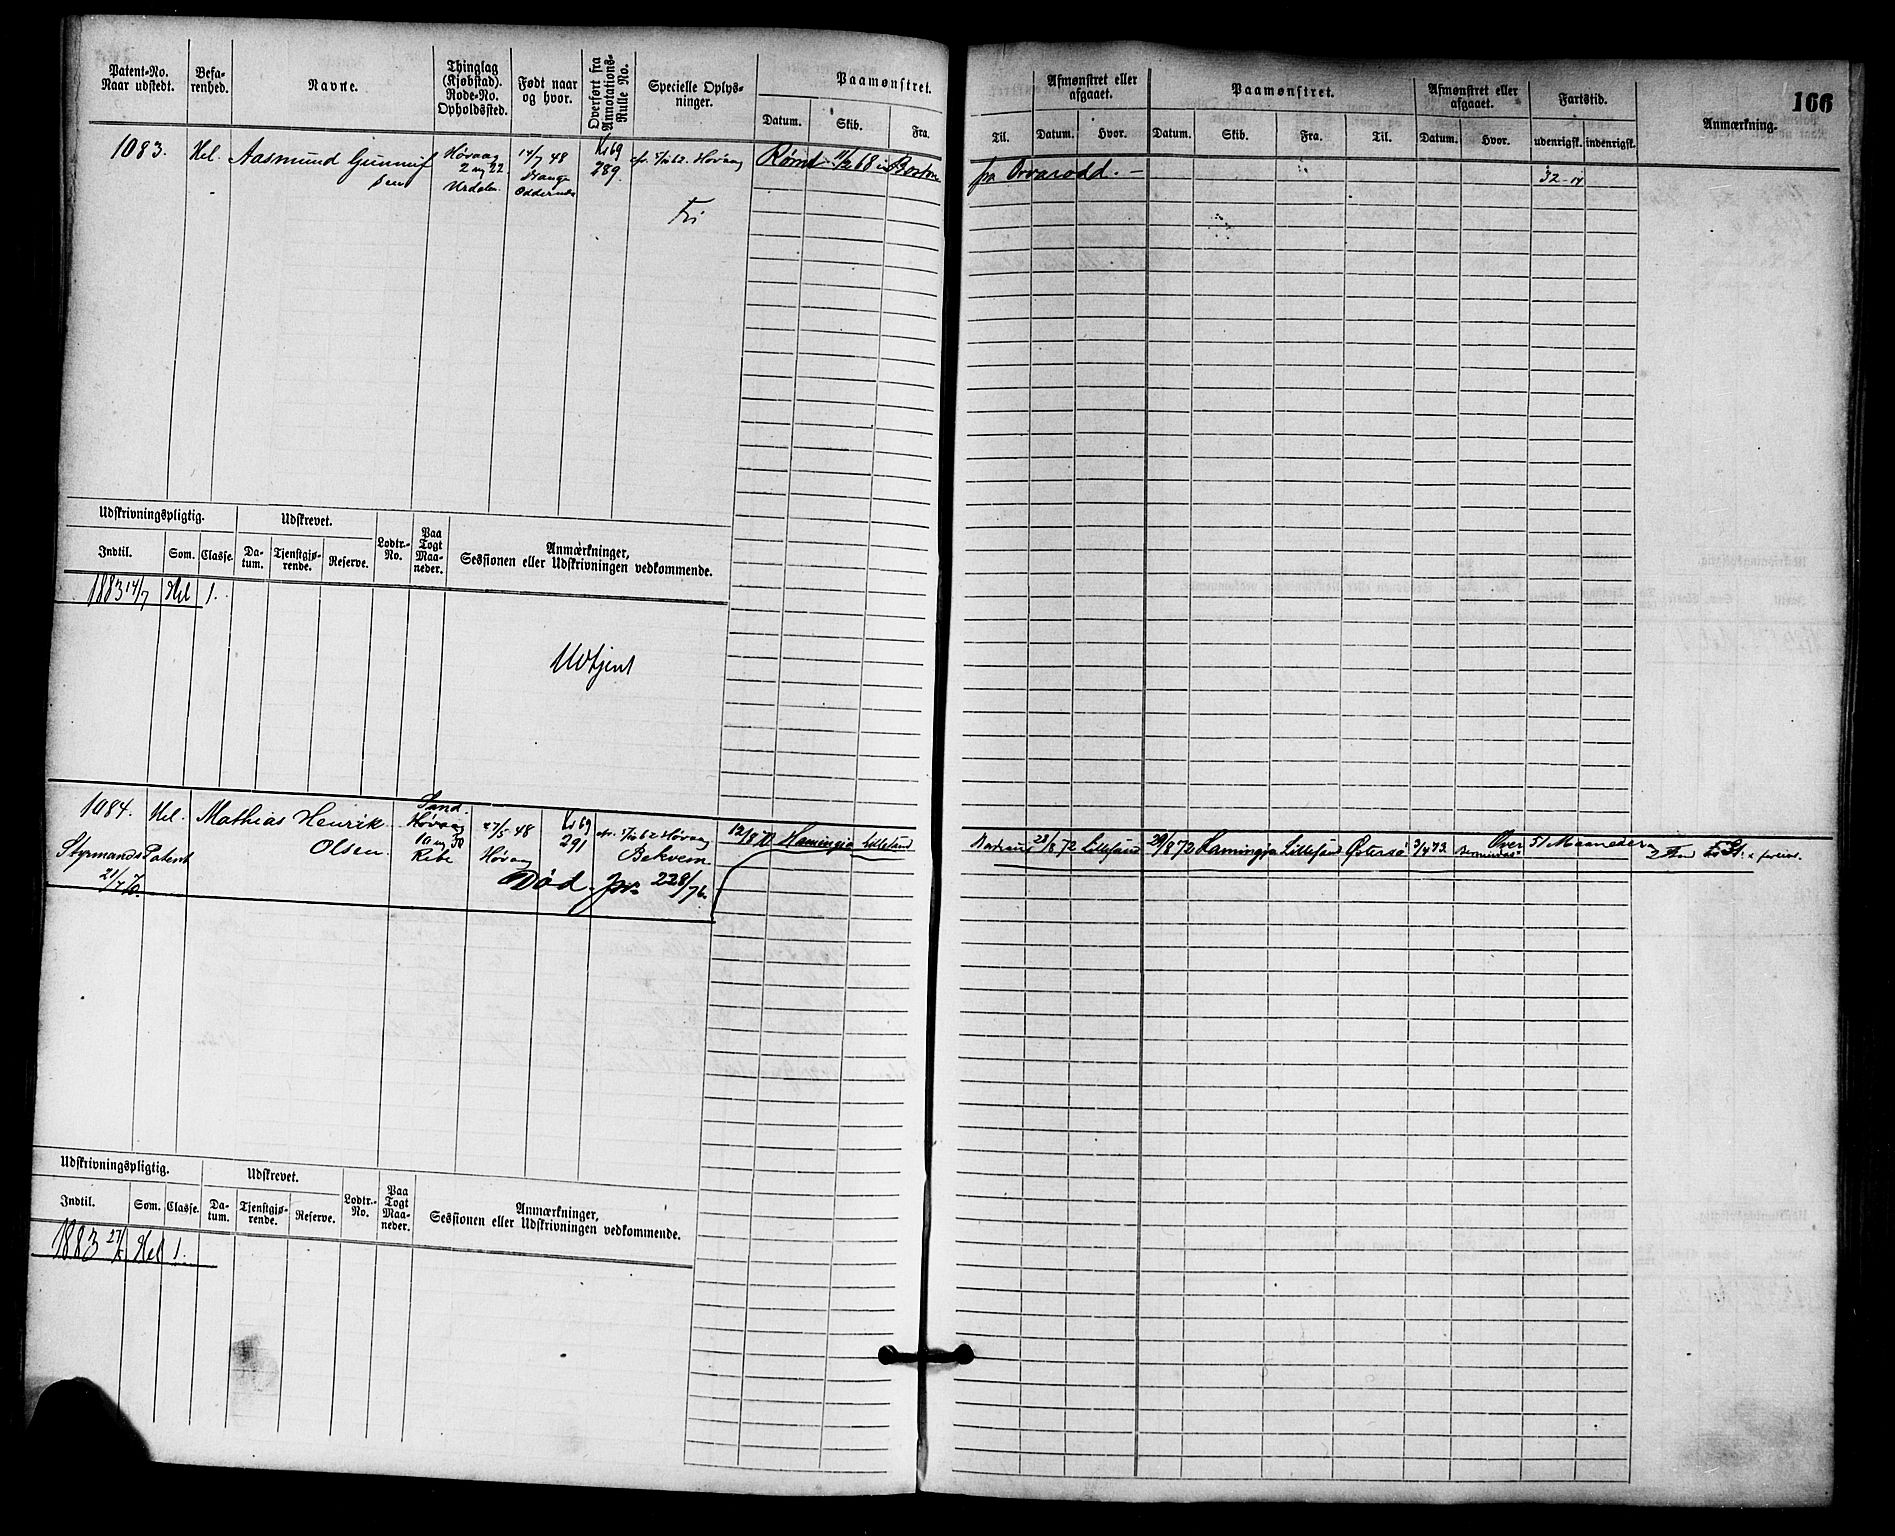 166
Patent-No. Naar udstedt.
Befarenhed.
Navne.
Thinglag (Kjøbstad). Rode-No. Opholdssted.
Født naar og hvor.
Overført fra Annotations-Rulle No.
Specielle Oplysninger.
Paamønstret.
Datum. Skib. Fra. Til.
Afmønstret eller afgaaet.
Datum. Hvor.
Paamønstret.
Datum. Skib. Fra. Til.
Afmønstret eller afgaaet.
Datum. Hvor.
Fartstid.
udenrigsk. indenrigsk.
Anmærkning.
1083. Hel. Aasmund Gunnuf
sen
Høvaag
2 ag 22
Urdalen
14/7 48
Oddernæs
Ks 69
289.
Høvaag
Fri
Rømt 11/2 68 i Boston
fra Orvarodd. -
32-14
Udskrivningspligtig.
Indtil. Som. Classe.
Udskrevet.
Datum. Tjenstgjørende. Reserve.
Lodtr.-No.
Paa Togt Maaneder.
Anmærkninger, Sessionen eller Udskrivningen vedkommende.
1883 14/7 Hel 1.
Udtjent
1084. Hel. Mathias Henrik
Olsen
Styrmands Patent
21/7 70.
Høvaag
10 ag 30
Ribe
27/5 48
Høvaag
Ks 69
291
Høvaag
Bekvem
Død. jvr. 228/76.
12/8 70 Hamingja Lillesand
28/8 72 Lillesand 29/8 72 Hamingja Lillesand Østersø 3/4 73. Over 51 Maaneder
Udskrivningspligtig.
Indtil. Som. Classe.
Udskrevet.
Datum. Tjenstgjørende. Reserve.
Lodtr.-No.
Paa Togt Maaneder.
Anmærkninger, Sessionen eller Udskrivningen vedkommende.
1883 27/5 Hel 1.